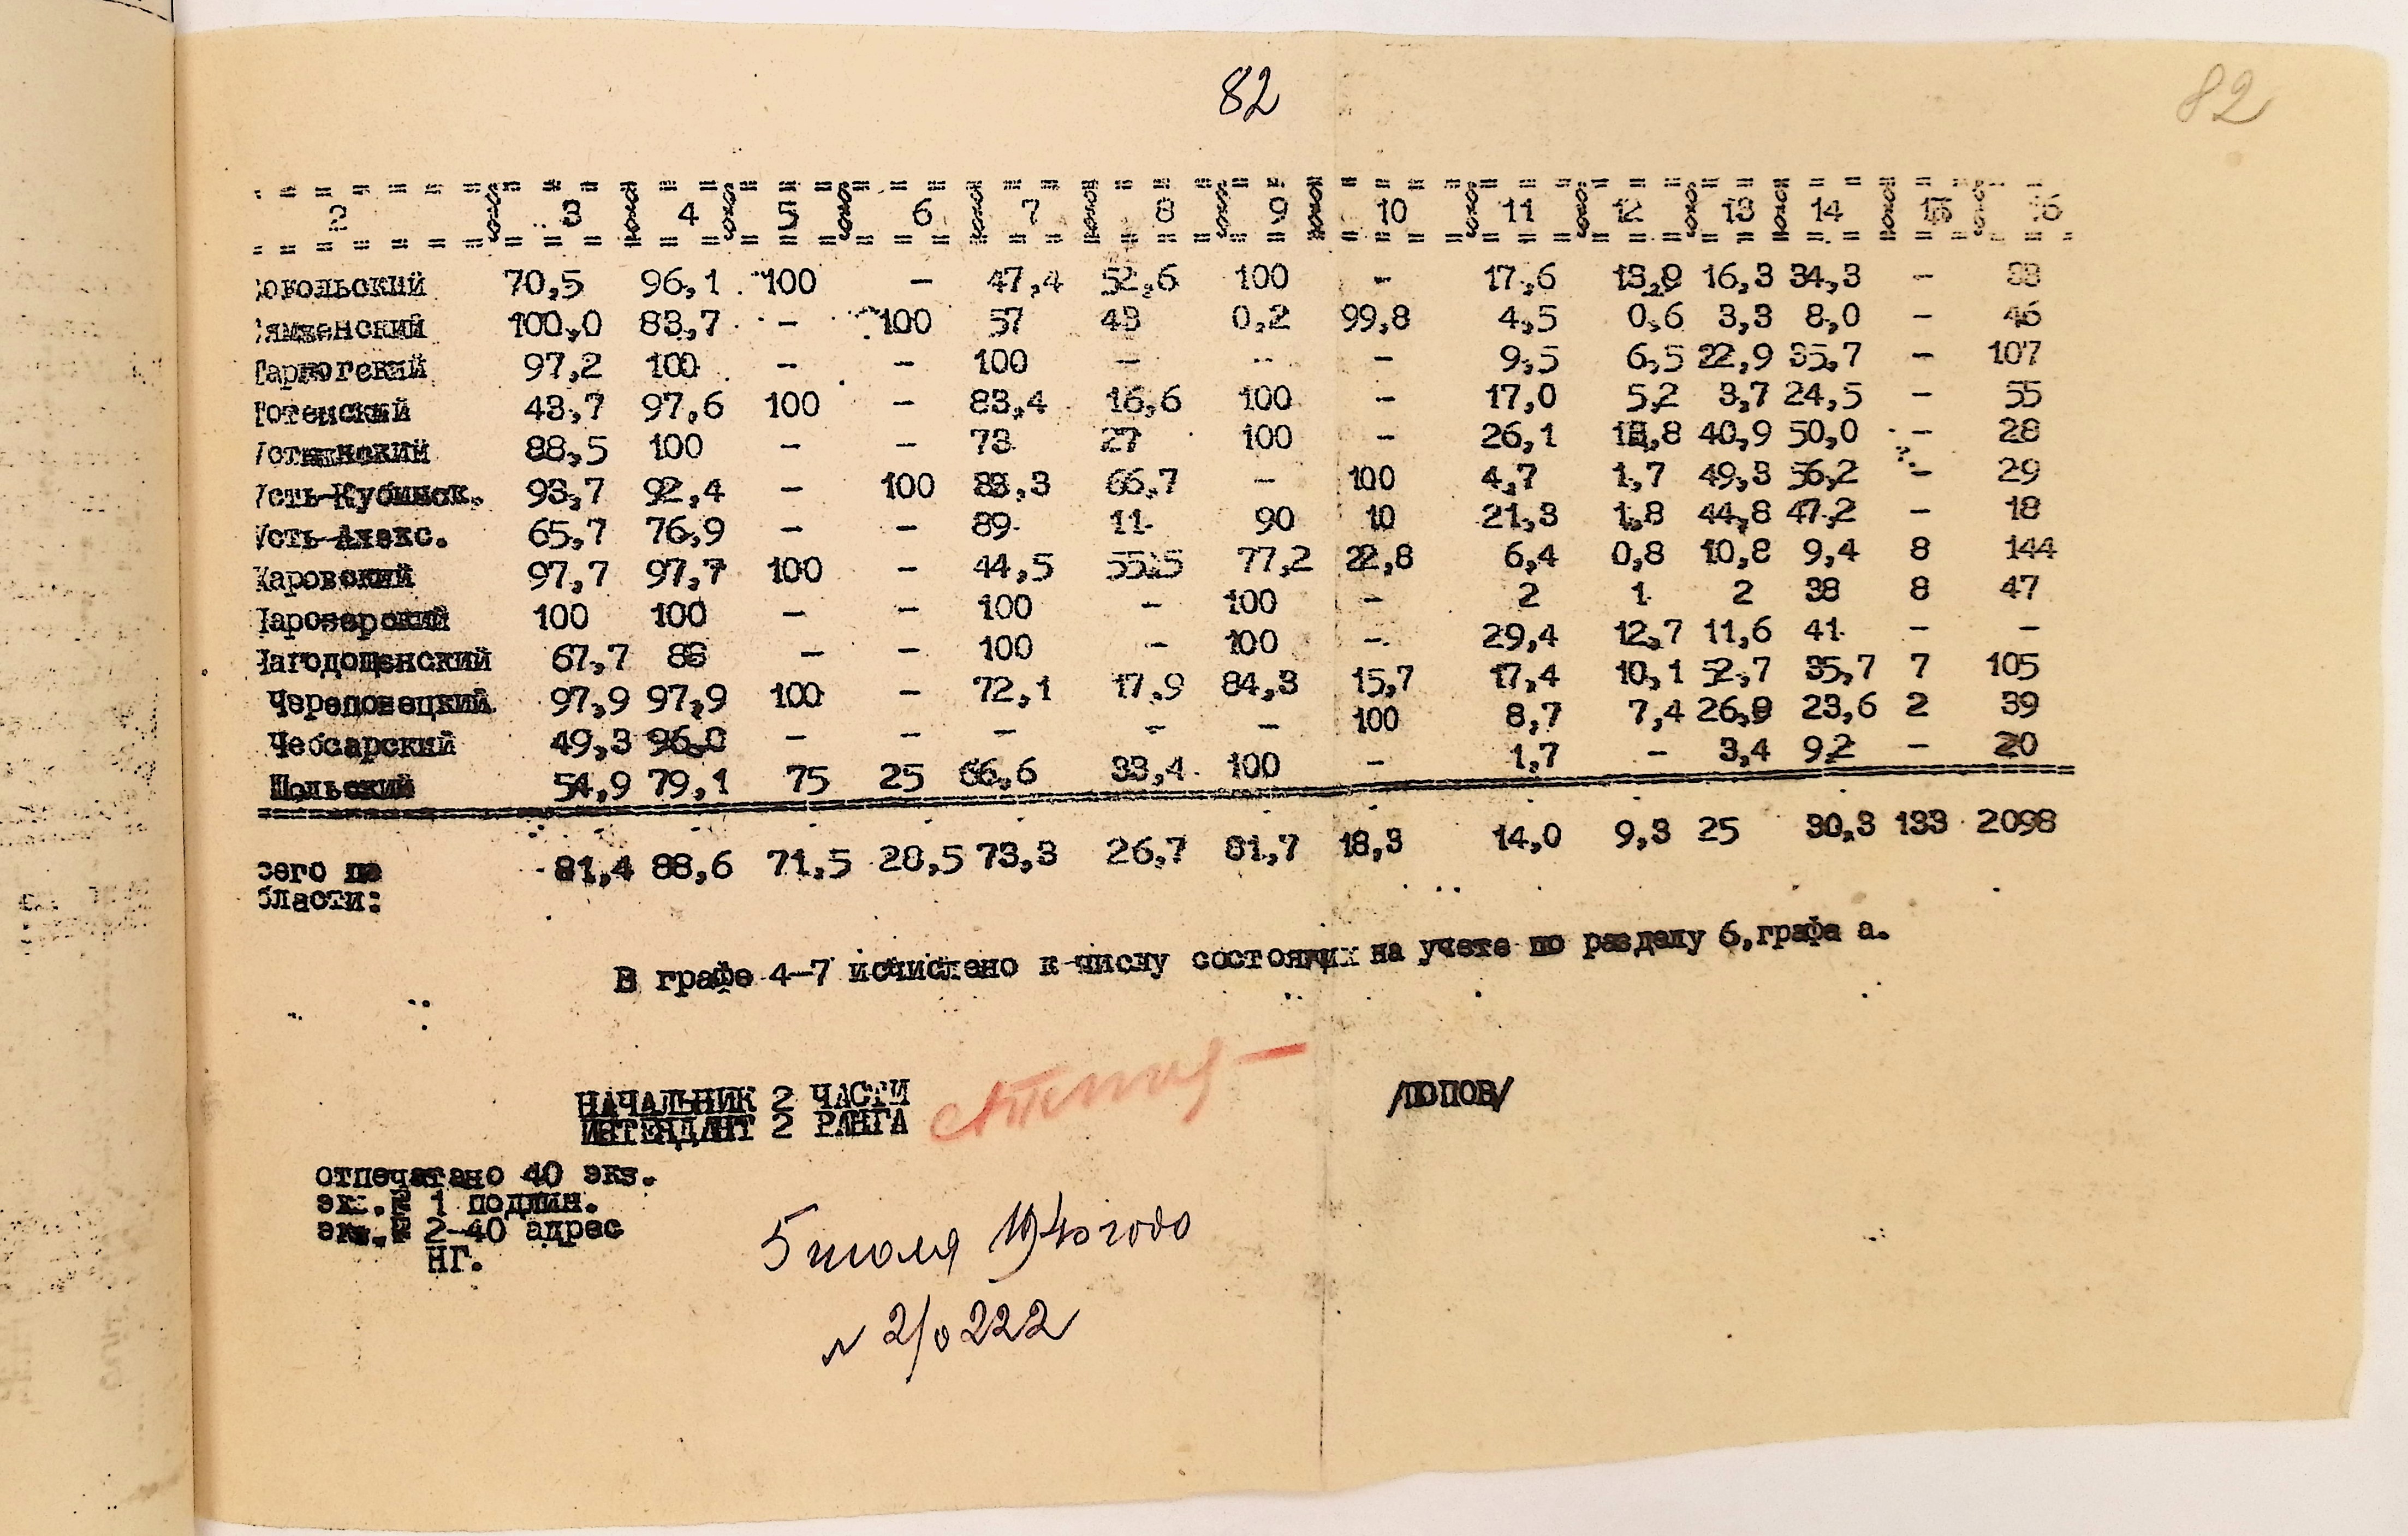 82
82
2 3 4 5 6 7 8 9 10 11 12 13 14 15 16
окольский 70,5 96,1 100 - 47,4 52,6 100 - 17,6 16,3 34,3 - 38
100,0 83,7 - 100 57 43 0,2 99,8 4,5 0,6 3,3 8,0 - 46
Тарногский 97,2 100 - - 100 - - - 9,5 6,5 22,9 35,7 - 107
Тотемский 43,7 97,6 100 - 83,4 16,6 100 - 17,0 5,2 3,7 24,5 - 55
88,5 100 - - 73 27 100 - 26,1 40,9 50,0 - 28
Усть-Кубинск. 93,7 92,4 - 100 66,7 - 100 4,7 1,7 49,3 56,2 - 29
Усть-Алекс. 65,7 76,9 - - 89 11 90 10 21,3 1,8 44,8 47,2 - 18
Харовский 97,7 97,7 100 - 44,5 55,5 77,2 22,8 6,4 0,8 10,8 9,4 8 144
Чарозерский 100 100 - - 100 - 100 - 2 1 2 38 8 47
Чагодощенский 67,7 88 - - 100 - 100 - 29,4 12,7 11,6 41 - -
Череповецкий 97,9 97,9 100 - 72,1 17,9 84,3 15,7 17,4 10,1 52,7 35,7 7 105
Чебсарский 49,3 96,0 - - - - - 100 8,7 7,4 26,9 23,6 2 39
Шольский 54,9 79,1 75 25 66,6 33,4 100 - 1,7 - 3,4 9,2 - 20
сего по 81,4 88,6 71,5 28,5 73,3 26,7 81,7 18,3 14,0 9,3 25 30,3 133 2098
бласти:
В графе 4-7 исчислено к числу состоящих на учете по разделу 6,графа а.
НАЧАЛЬНИК 2 ЧАСТИ
ИНТЕНДАНТ 2 РАНГА /ПОПОВ/
отпечатано 40 экз.
эк.№ 1 подлин.
эк.№ 2-40 адрес
НГ.
5 июля 1940 года
№ 2/0222